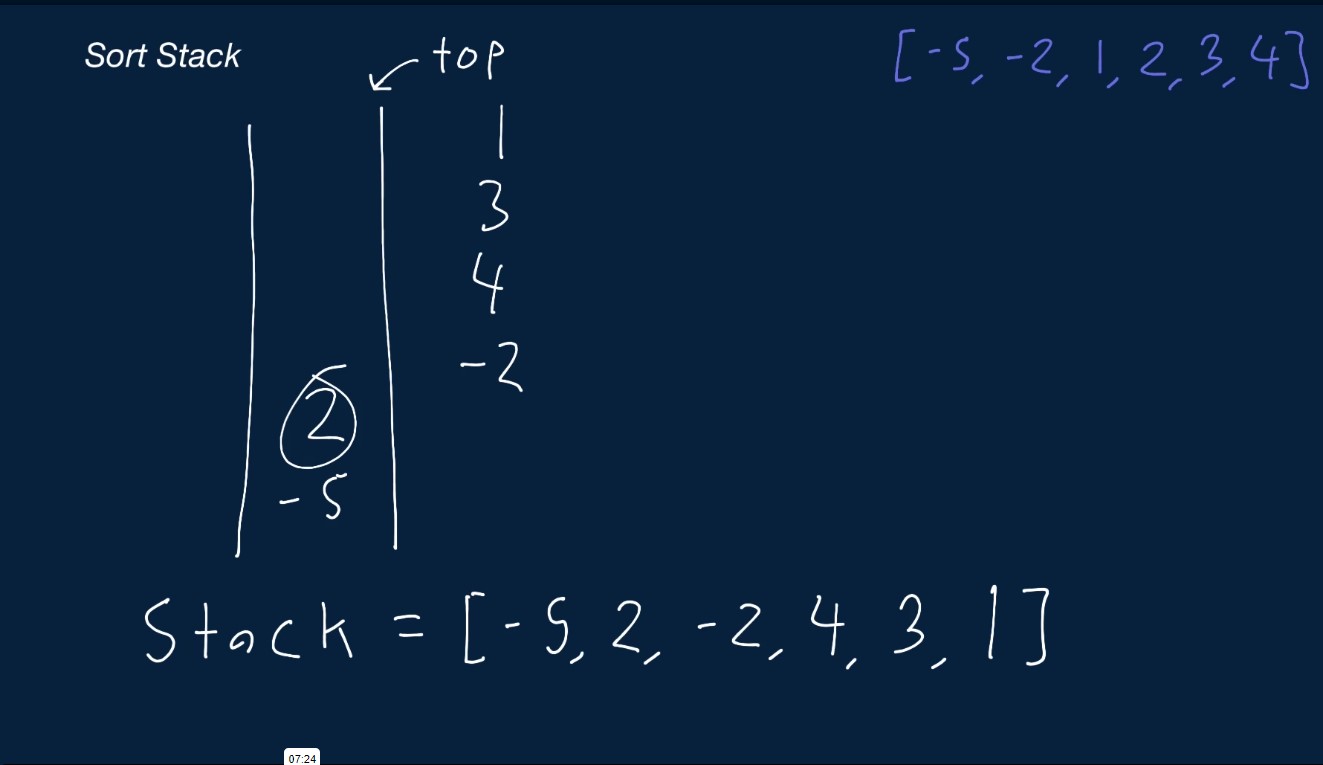 Sort Stack
top
[-5, -2, 1, 2, 3, 4]
1
3
4
-2
2
-5
Stack = [-5, 2, -2, 4, 3, 1]
07:24